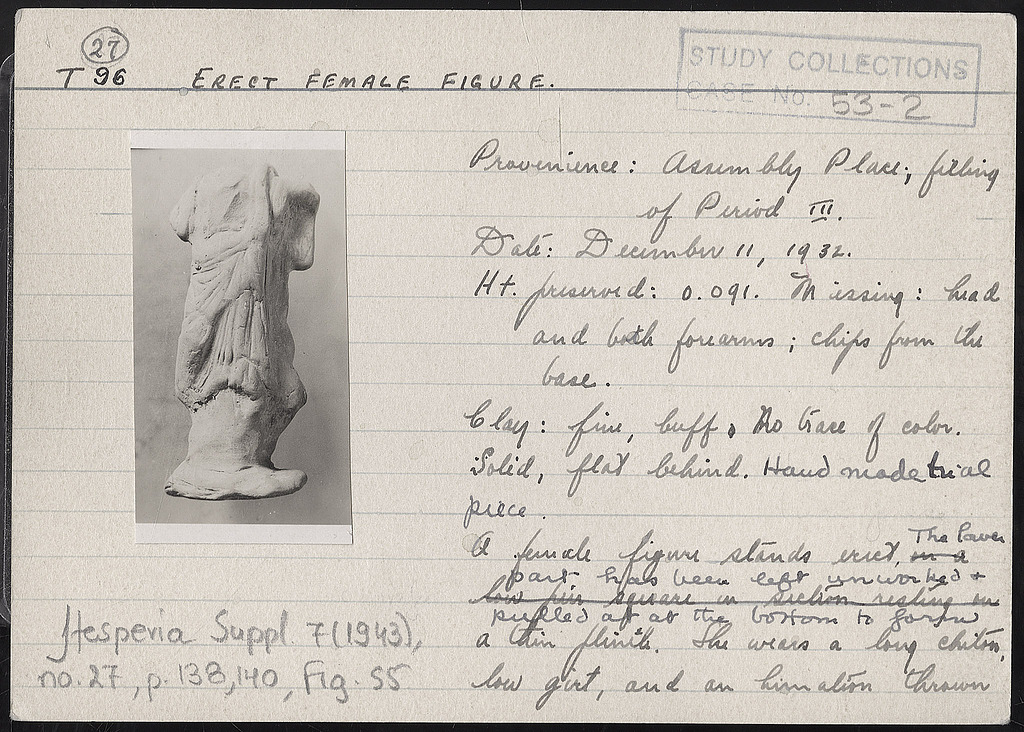 27
T 96 ERECT FEMALE FIGURE.
STUDY COLLECTIONS
CASE No. 53-2
Provenience: Assembly Place; filling
of Period III.
Date: December 11, 1932.
Ht. preserved: 0.091. Missing: head
and both forearms; chips from the
base.
Clay: fine, buff. No trace of color.
Solid, flat behind. Hand made trial
piece.
A female figure stands erect, on a The lower
part has been left unworked +
low pier square in section resting on
pulled out at the bottom to form
a thin plinth. She wears a long chiton,
low girt, and an himation thrown
Hesperia Suppl. 7 (1943),
no. 27, p. 138, 140, Fig. 55